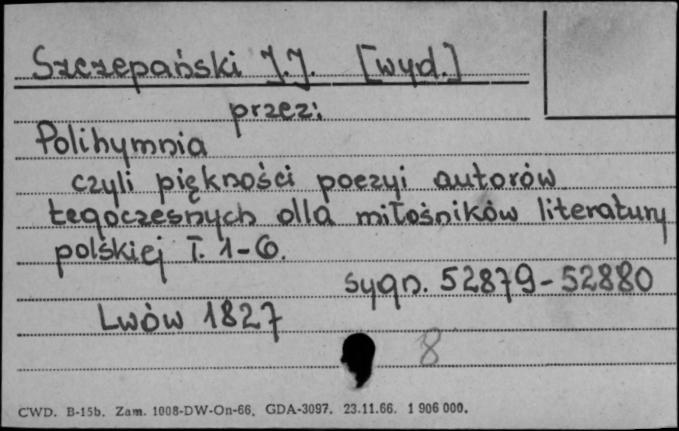 Szczepański J.J. [wyd.]
przez:
Polihymnia
czyli piękności poezyi autorów
tegoczesnych dla miłośników literatury
polskiej T. 1-6.
sygn. 52879-52880
Lwów 1827
8
CWD. B-15b. Zam. 1008-DW-On-66. GDA-3097. 23.11.66. 1 906 000.